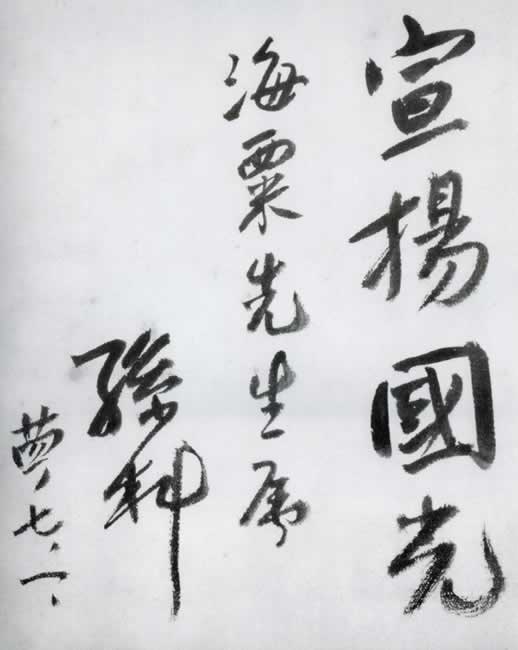 宣揚國光
海粟先生属
孫科
七、一、